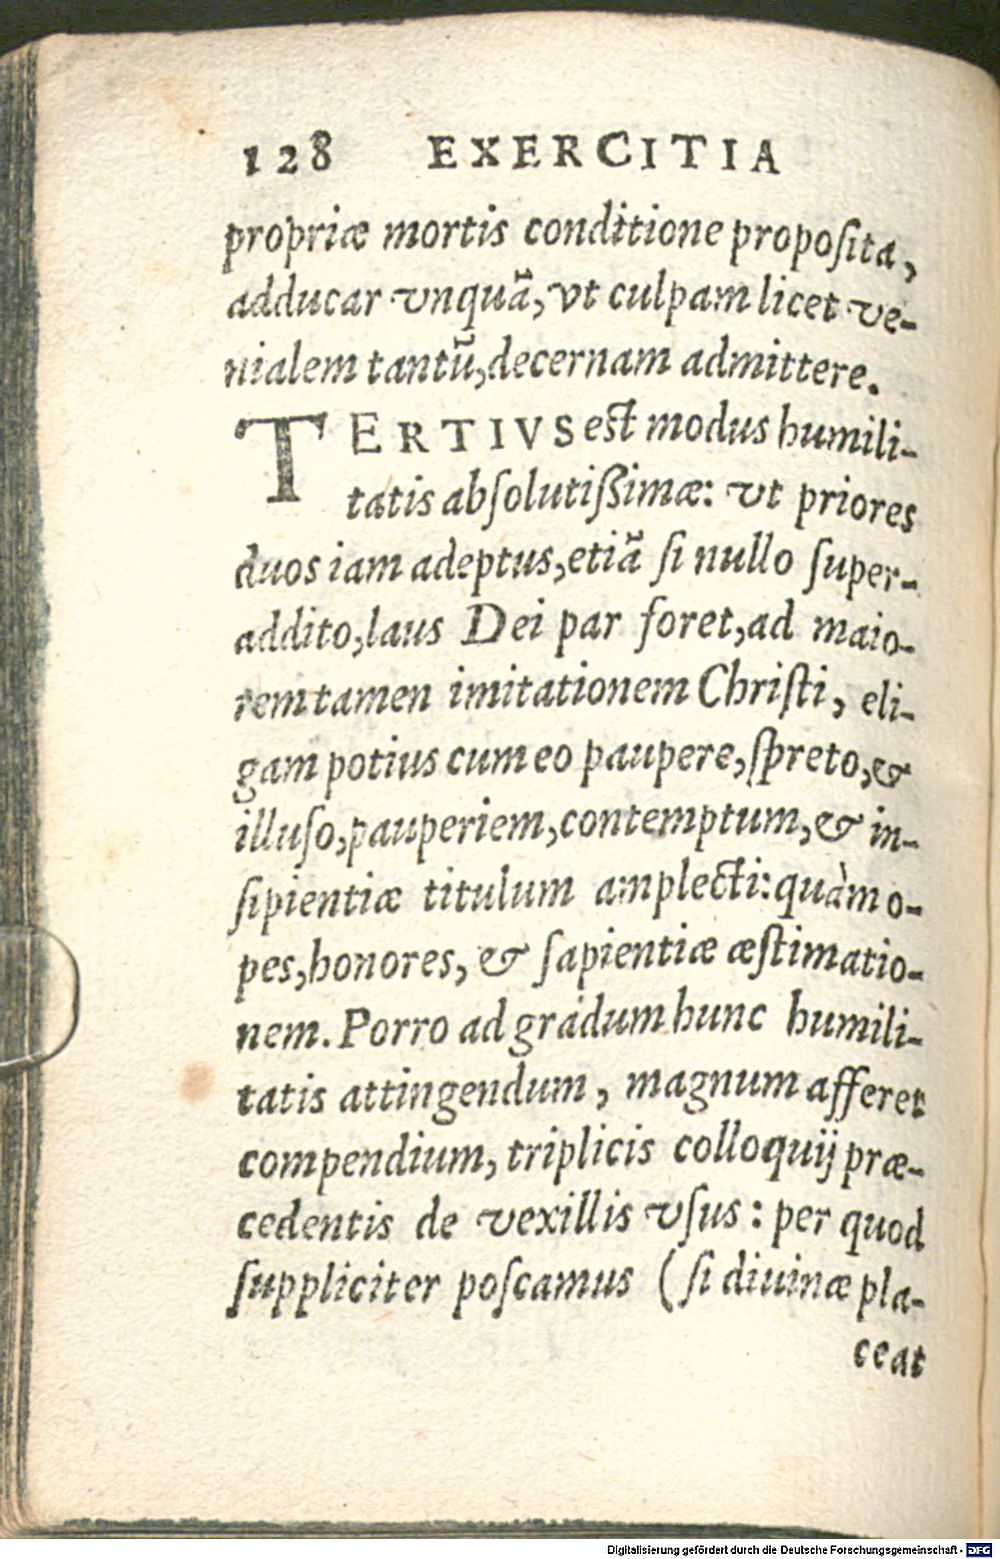 128 EXERCITIA
propriæ mortis conditione proposita,
adducar vnquã, vt culpam licet ve-
nialem tantũ, decernam admittere.
TERTIVS est modus humili-
tatis absolutißimæ: vt priores
duos iam adeptus, etiã si nullo super-
addito, laus Dei par foret, ad maio-
rem tamen imitationem Christi, eli-
gam potius cum eo paupere, spreto, &
illuso, pauperiem, contemptum, & in-
sipientiæ titulum amplecti: quàm o-
pes, honores, & sapientiæ æstimatio-
nem. Porro ad gradum hunc humili-
tatis attingendum, magnum afferet
compendium, triplicis colloquij præ-
cedentis de vexillis vsus: per quod
suppliciter poscamus (si diuinæ pla-
ceat
Digitalisierung gefördert durch die Deutsche Forschungsgemeinschaft - DFG